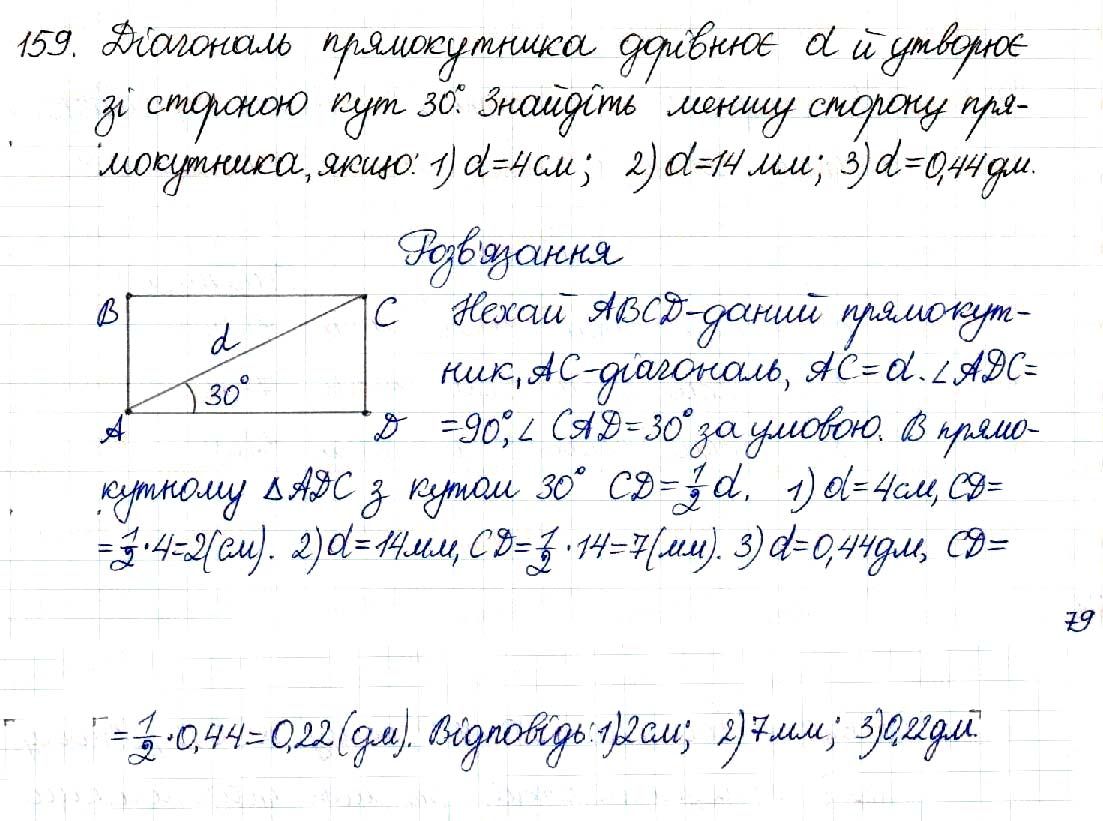 159. Діагональ прямокутника дорівнює d й утворює
зі стороною кут 30°. Знайдіть меншу сторону пря-
мокутника, якщо: 1) d=4см; 2) d=14 мм; 3) d=0,44дм.
Розв'язання
B
C
d
30°
A
D
Нехай ABCD-даний прямокут-
ник, AC-діагональ, AC=d. ∠ADC=
=90°, ∠CAD=30° за умовою. В прямо-
кутному △ADC з кутом 30° CD=1/2 d. 1) d=4см, CD=
=1/2·4=2(см). 2) d=14мм, CD=1/2·14=7(мм). 3) d=0,44дм, CD=
79
=1/2·0,44=0,22(дм). Відповідь: 1)2см; 2)7мм; 3)0,22дм.